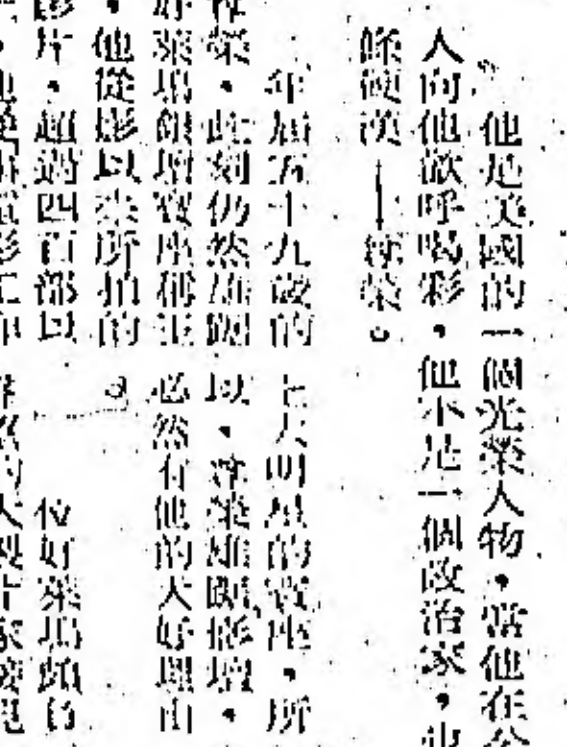 他是美國的一個光榮人物，當他在公
人向他歡呼喝彩，他不是一個政治家，也
條硬漢—尊榮。
年屆五十九歲的
尊榮，此刻仍然雄踞
好萊塢銀壇寶座稱王
，他從影以來所拍的
影片，超過四百部以
上大明星的寶座，所
以，尊榮雄踞影壇，
必然有他的大好理由
。
位好萊塢頗負
的大製片家